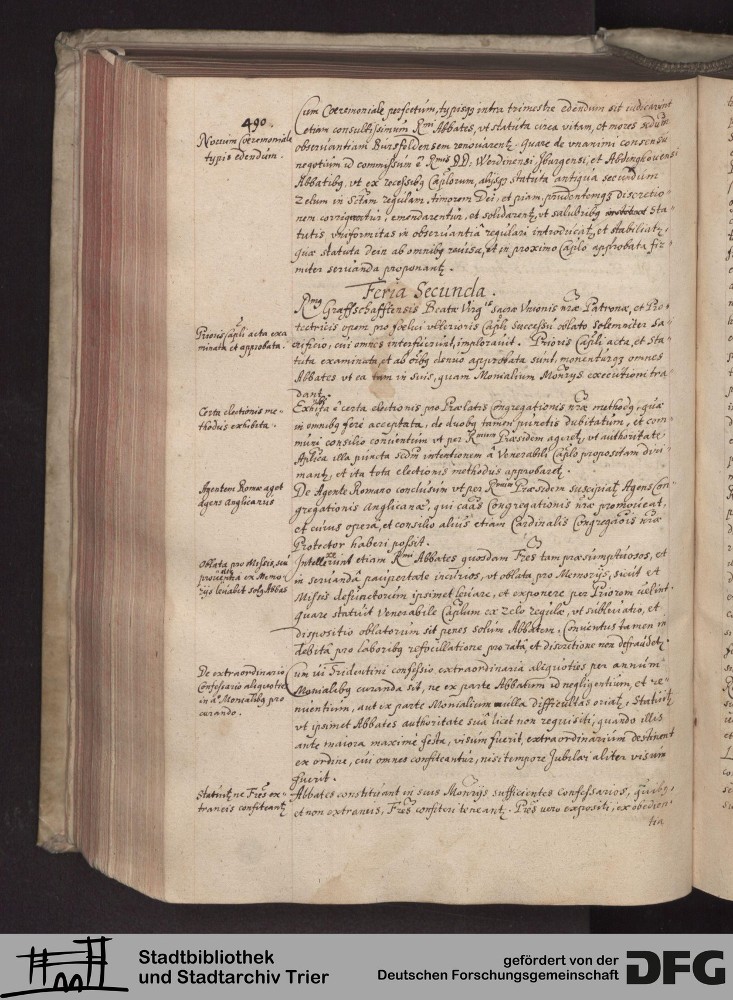 490.
Novum Cœremoniale
typis edendum.
Cum Cœremoniale perfectum, typisq̧ intra trimestre edendum sit iudicarunt
etiam consultissimum Rmi Abbates, vt statuta circa vitam, et mores
observantiam Bursfeldensem renouarentʒ. Quare de vnanimi consensu
negotium id commissum ẽ Rmis DD: Werdinensi, Iburgensi, et Abdenghouensi
Abbatibʒ, vt ex recessibʒ Capłorum, alijsq̧ statuta antiqua secundum
zelum in Sctãm regulam timorem Dei, et piam, prudentemqʒ discretio-
nem corrigantur, emendarentur, ac solidarentʒ, vt salubribʒ Sta-
tutis vniformitas in obseruantiâ regulari introducatʒ, et stabiliatʒ,
quæ statuta dein ab omnibʒ reuisa, et in proximo Capłó approbata fir-
miter seruanda proponantʒ.
Feria Secunda.
Rmʒ Graffschafftensis Beatæ Virgis sacræ Vnionis nræ Patronæ, et Pro-
tectricis opem pro fœlici vlterioris Capłi successu oblato solemniter Sa-
Prioris Capłi acta exa
minata et approbata.
crificio, cui omnes interfuerunt, implorauit. Prioris Capłi acta, et Sta-
tuta examinata, et ab oibʒ denuo approbata sunt, monenturqʒ omnes
Abbates vt ea tam in suis, quam Monialium Monrijs executioni tra-
dantʒ.
Certa electionis me-
thodus exhibita.
Exhita ẽ certa electionis pro Prælatis Congregationis nræ methodʒ, quæ
in omnibʒ feré acceptata, de duobʒ tamen punctis dubitatum, et com-
muni consilio conuentum vt per Rmum Præsidem ageretʒ, vt authoritate
Aplica illa puncta scdm intentionem â Venerabili Capło propositam diri-
mantʒ, et ita tota electionis methodus approbaretʒ.
Agentem Romæ agat
Agens Anglicanus
De Agente Romano conclusum vt per Rmum Præsidem suscipiatʒ Agens Con-
gregationis Anglicanæ, qui caûs Congregationis nræ promoueat,
et cuius opera, et consilio alius etiam Cardinalis Congregãois nræ
Protector haberi possit.
Oblata pro Missis, seu
prouentia ex Memo-
rijs leuabit solʒ Abbas
Intellexerunt etiam Rmi Abbates quosdam Fres tam præsumptuosos, et
in seruandâ paupertate incurios, vt oblata pro Memorijs, sicut et
Missis defunctorum ipsimet leuare, et exponere per Priorem uelint,
quare statuit Venerabile Capłum ex zelo regulæ, vt subleuatio, et
dispositio oblatorum sit penes solum Abbatem, Conuentus tamen in
debitâ pro laboribʒ refocillatione pro ratâ, et discretione non defraudetʒ.
De extraordinario
Confessario aliquoties
in aõ Monialibʒ pro
curando.
Cum ui Tridentini confessio extraordinaria aliquoties per annum
Monialibʒ curanda sit, ne ex parte Abbatum id negligentium, et re-
nuentium, aut ex parte Monialium ulla difficultas oriatʒ, Statuitʒ
vt ipsimet Abbates authoritate suâ licet non requisiti, quando illis
ante maiora maximé festa, visum fuerit, extraordinarium destinent
ex ordine, cui omnes confiteantur, nisi tempore Jubilæi aliter visum
fuerit.
Statuitʒ ne Fres ex-
traneis confiteantʒ
Abbates constituant in suis Monrijs sufficientes Confessarios, quibʒ,
et non extraneis, Fres confiteri teneantʒ. Pres vero expositi, ex obedien-
tia
Stadtbibliothek
und Stadtarchiv Trier
gefördert von der
Deutschen Forschungsgemeinschaft
DFG